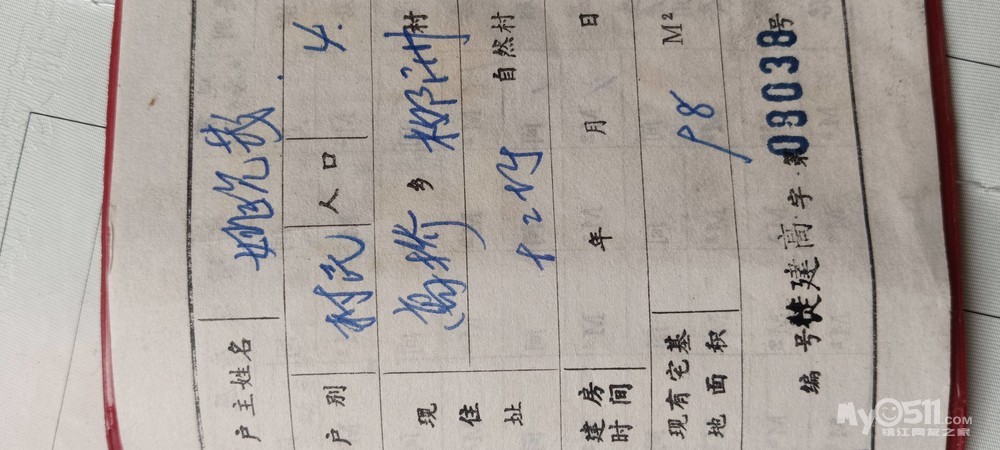 户主姓名 姚
户别 村民 人口 4.
现住址 高桥 乡 村
十2 自然村
建房时间 年 月 日
现有宅基地面积 98 M²
编号 徒建高字第080038号
My0511.com
镇江网友之家